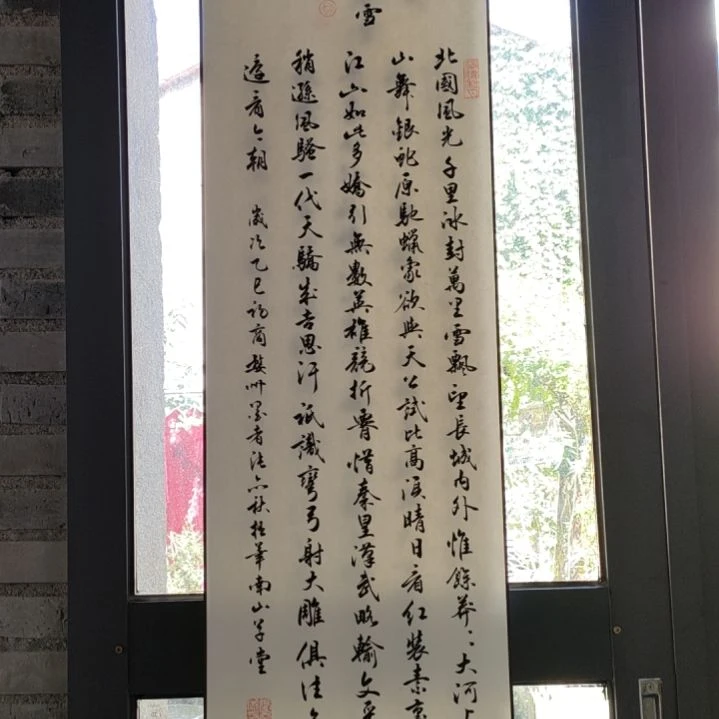 雪
北國風光千里冰封萬里雪飄望長城内外惟餘莽〻大河上
山舞銀虵原馳蠟象欲與天公試比高須晴日看红裝素
江山如此多嬌引無數英雄競折腰惜秦皇漢武略輸文采
稍遜風騷一代天驕成吉思汗祇識彎弓射大雕俱往
還看今朝
歲次乙巳初商婺州
南山草堂